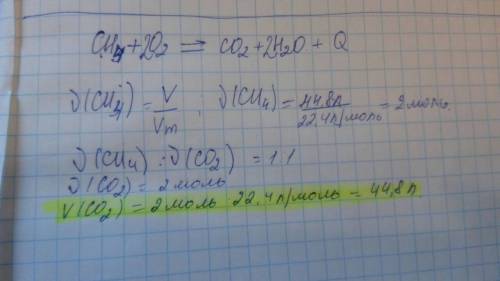 CH4+2O2 = CO2+2H2O + Q
ν(CH4) = V/Vm ; ν(CH4) = 44,8л/22,4л/моль = 2моль.
ν(CH4) : ν(CO2) = 1:1
ν(CO2) = 2моль
V(CO2) = 2моль · 22,4л/моль = 44,8л.